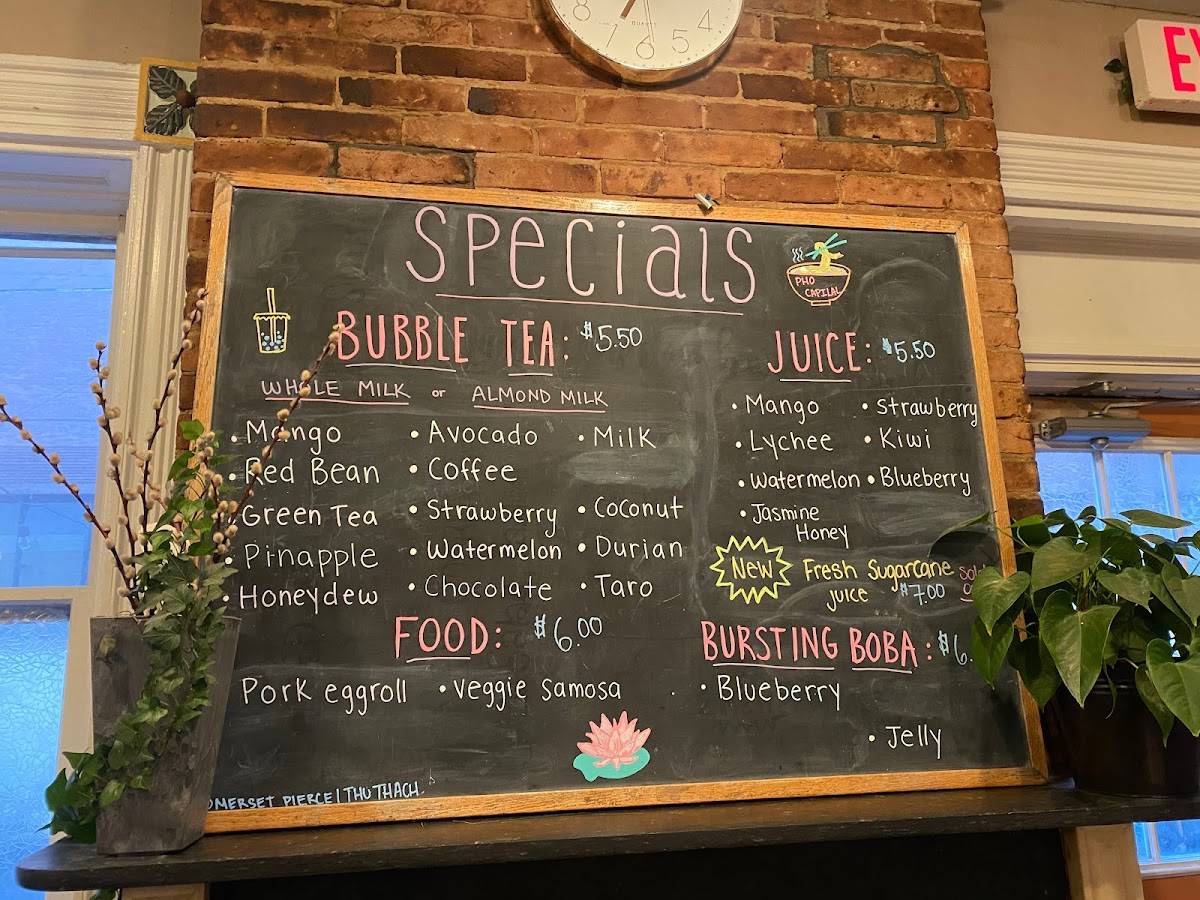 8 7 6 5 4
QUARTZ
EX
SPecialS
PHO
CAPILAL
BUBBLE TEA: $5.50
WHOLE MILK or ALMOND MILK
• Mango • Avocado • Milk
• Red Bean • Coffee
• Green Tea • Strawberry • Coconut
• Pinapple • Watermelon • Durian
• Honeydew • Chocolate • Taro
JUICE: $5.50
• Mango • Strawberry
• Lychee • Kiwi
• Watermelon • Blueberry
• Jasmine
Honey
New Fresh Sugarcane
juice $7.00
FOOD: $6.00
Pork eggroll • Veggie Samosa
BURSTING BOBA: $6.
• Blueberry
• Jelly
OMERSET PIERCE | THU THACH